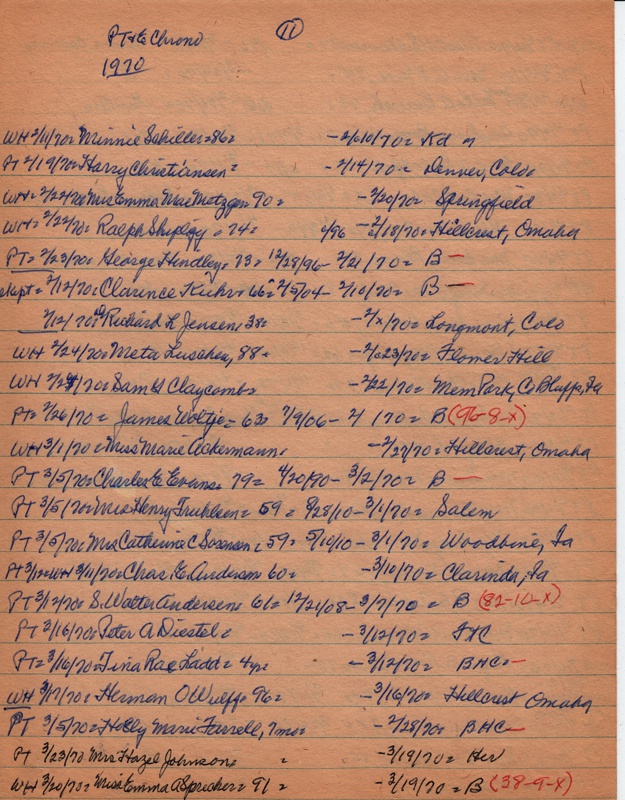 PT & E Chrono
11
1970
WH 2/11/70 = Minnie Schiller = 86 = - 2/10/70 = Kd
PT 2/19/70 = Harry Christiansen = - 2/14/70 = Denver, Colo
WH = 2/24/70 Mrs Emma Mae Metzger 90 = - 2/20/70 = Springfield
WH = 2/22/70 Ralph Shipley = 74 = /96 - 2/18/70 = Hillcrest, Omaha
PT = 2/23/70 = George Hindley = 73 = 12/28/96 - 2/21/70 = B —
2/12/70 = Clarence Kuhr = 66 = 2/5/04 - 2/10/70 = B —
2/12/70 Richard L Jensen 38 = - 2/x/70 = Longmont, Colo
WH 2/24/70 = Meta 88 = - 2/23/70 = Flower Hill
WH /70 = Sam H Claycomb = - 2/22/70 = Mem Park, Co Bluffs, Ia
PT = 2/26/70 = James Woltje = 63 = 7/9/06 - 2/ /70 = B (96-8-x)
WH 3/1/70 = Miss Marie Ackermann = - 2/27/70 = Hillcrest, Omaha
PT 3/5/70 = Charles E Evans = 79 = 4/20/90 - 3/2/70 = B —
PT 3/5/70 = Mrs Henry = 59 = 8/28/10 - 3/1/70 = Salem
PT 3/5/70 = Mrs Catherine C Sorensen = 59 = 5/10/10 - 3/1/70 = Woodbine, Ia
PT 3/12 = WH 3/11/70 = Chas. E. Anderson 60 = - 3/10/70 = Clarinda, Ia
PT 3/12/70 = S. Walter Andersen = 61 = 12/21/08 - 3/7/70 = B (82-10-x)
PT 3/16/70 = Peter A Diestel = - 3/12/70 = FHC
PT = 3/16/70 = Tina Rae Ladd = 4 yr = - 3/12/70 = BHC —
WH 3/17/70 = Herman O Wulff = 96 = - 3/16/70 = Hillcrest Omaha
PT 3/5/70 = Holly Marie Farrell, 7 mo = - 2/28/70 = BHC —
PT 3/23/70 Mrs Hazel Johnson = = - 3/19/70 = Her
WH 3/20/70 = Miss Emma A Spreicher = 91 = - 3/19/70 = B (38-9-x)